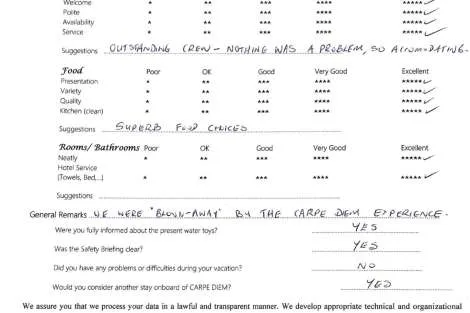 Welcome * ** *** **** *****✓
Polite * ** *** **** *****✓
Availability * ** *** **** *****✓
Service * ** *** **** *****✓
Suggestions OUTSTANDING CREW - NOTHING WAS A PROBLEM, SO ACCOMODATING.
Food Poor OK Good Very Good Excellent
Presentation * ** *** **** *****✓
Variety * ** *** **** *****✓
Quality * ** *** **** *****✓
Kitchen (clean) * ** *** **** *****✓
Suggestions SUPERB FOOD CHOICES
Rooms/ Bathrooms Poor OK Good Very Good Excellent
Neatly * ** *** **** *****✓
Hotel Service
(Towels, Bed,...) * ** *** **** *****✓
Suggestions
General Remarks WE WERE "BLOWN-AWAY" BY THE CARPE DIEM EXPERIENCE.
Were you fully informed about the present water toys? YES
Was the Safety Briefing clear? YES
Did you have any problems or difficulties during your vacation? NO
Would you consider another stay onboard of CARPE DIEM? YES
We assure you that we process your data in a lawful and transparent manner. We develop appropriate technical and organizational